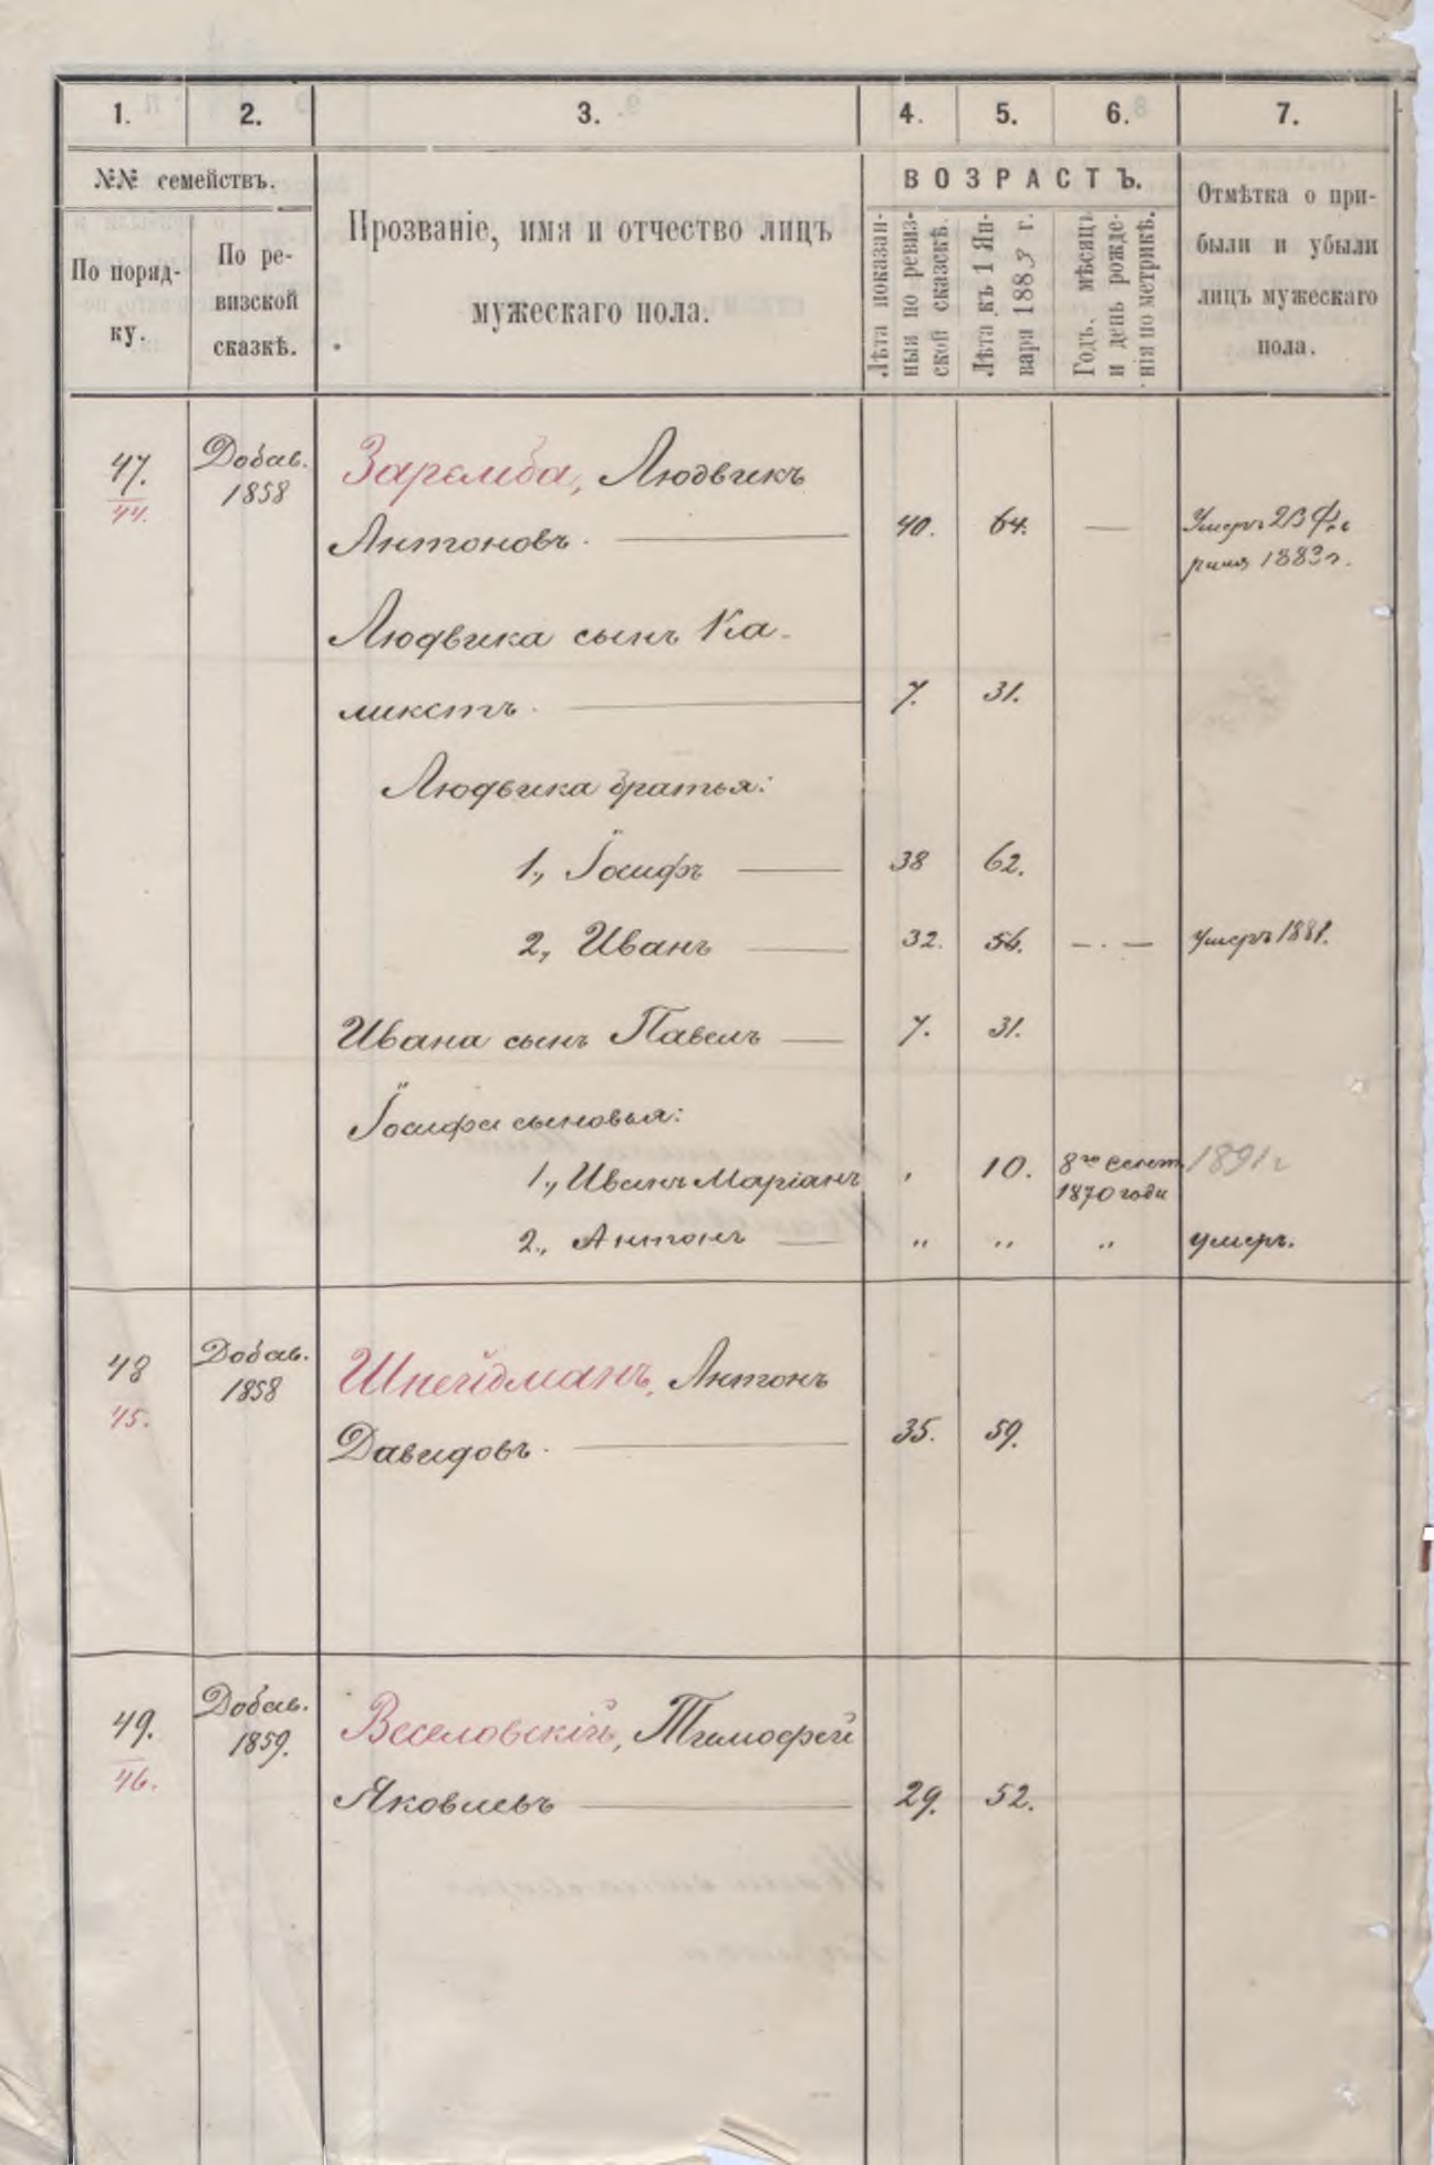 1. 2. 3. 4. 5. 6. 7.
№№ семействъ.
По поряд-
ку.
По ре-
визской
сказкѣ.
Прозваніе, имя и отчество лицъ
мужескаго пола.
ВОЗРАСТЪ.
Лѣта показан-
ныя по ревиз-
ской сказкѣ.
Лѣта къ 1 Ян-
варя 1883 г.
Годъ, мѣсяцъ
и день рожде-
нія по метрикѣ.
Отмѣтка о при-
были и убыли
лицъ мужескаго
пола.
47. Добав. Заремба, Людвикъ
44. 1858
Антоновъ. — 40. 64. — Умеръ 23 Фев
раля 1883 г.
Людвика сынъ Ка-
ликстъ. — 7. 31.
Людвика братья:
1., Іосифъ — 38 62.
2., Иванъ — 32. 56. — . — умеръ 1881.
Ивана сынъ Павелъ — 7. 31.
Іосифа сыновья:
1., Иванъ Маріанъ , 10. 8го Сент. 1891 г
1870 года
2., Антонъ — „ „ „ умеръ.
48 Добав. Шнейдманъ, Антонъ
45. 1858
Давидовъ. — 35. 59.
49. Добав. Веселовскій, Тимофей
46. 1859.
Яковлевъ — 29. 52.